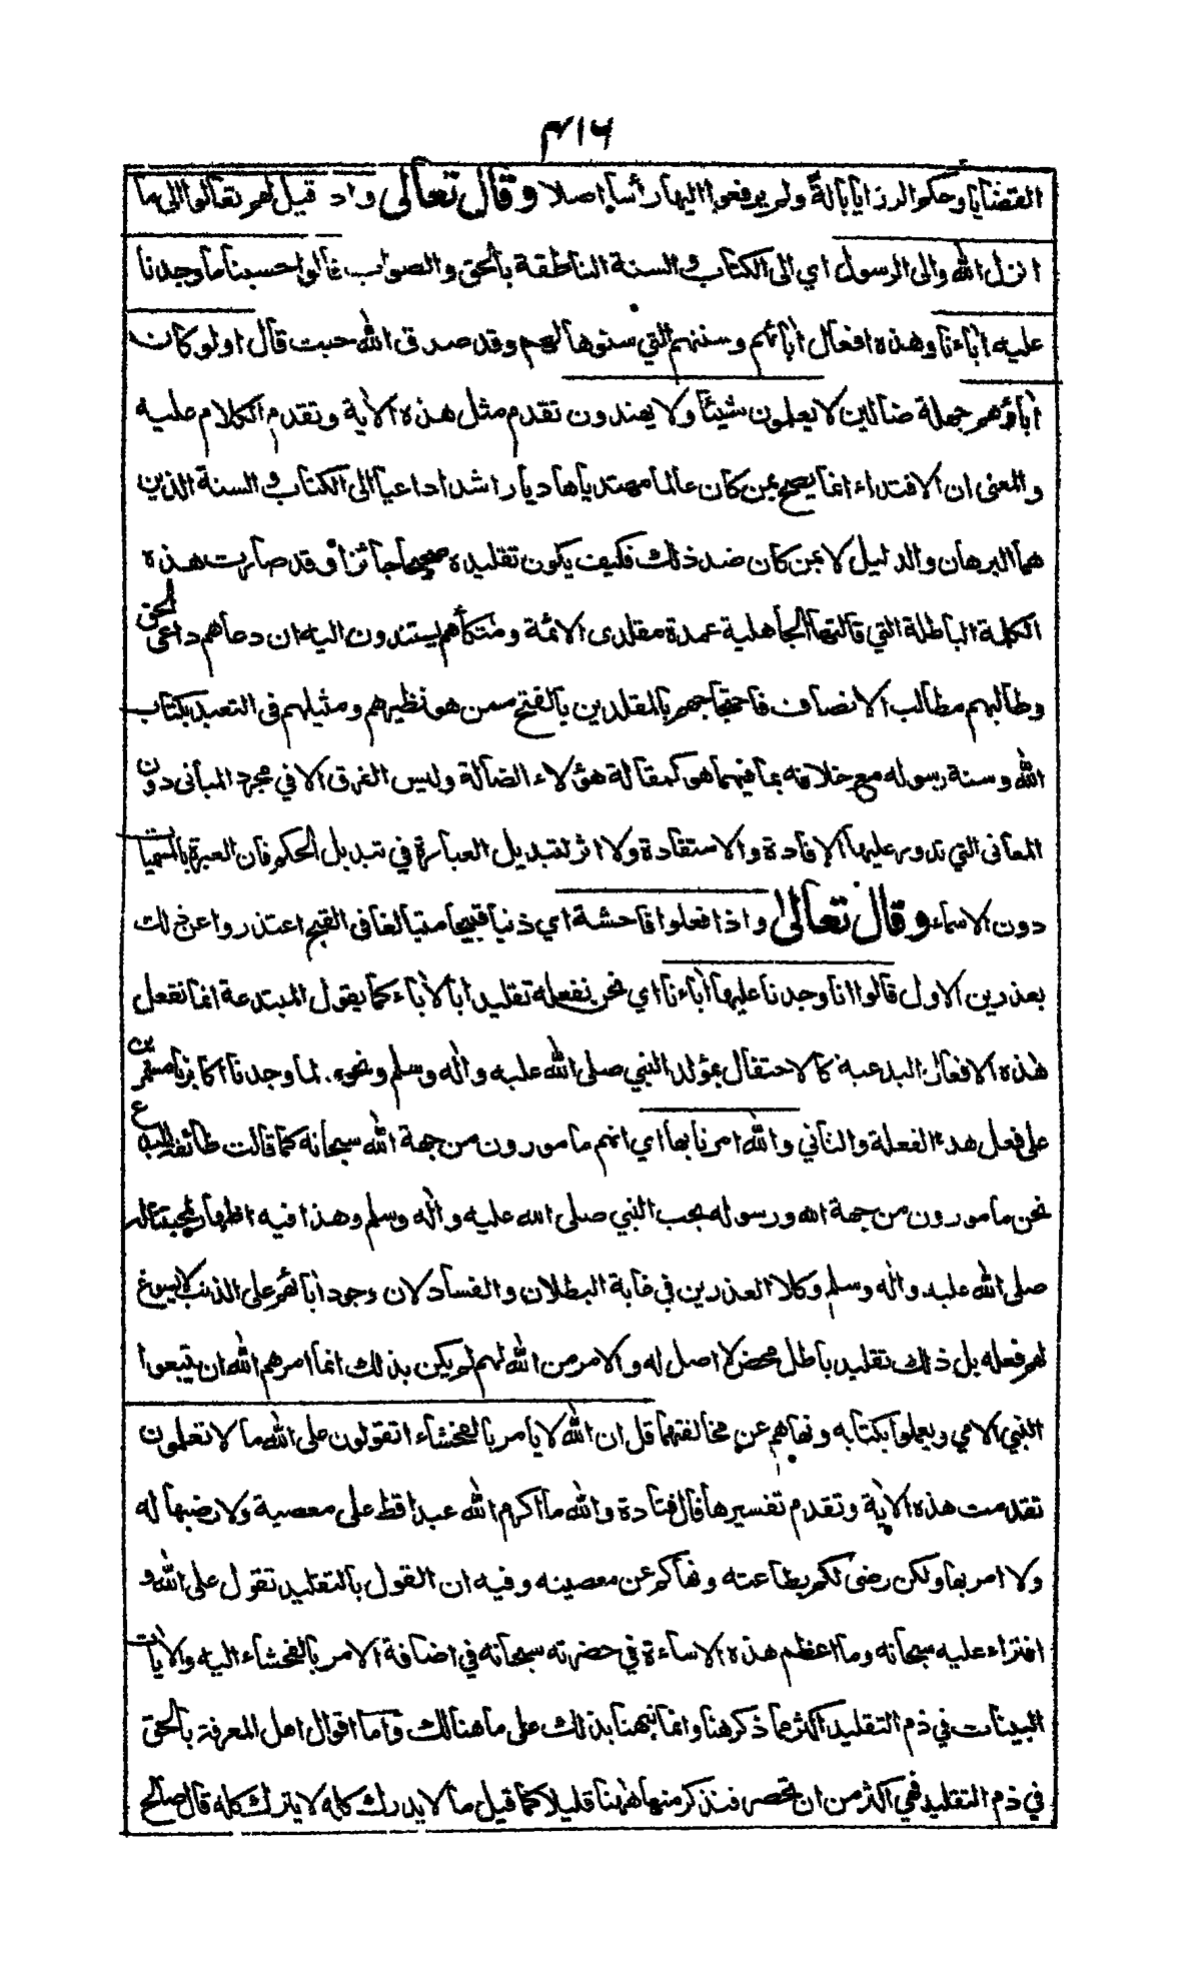 ٤١٦
القضايا وحكم الرزايا بالة ولم يرفعوا اليها رأسا اصلا وقال تعالى واذ قيل لهم تعالوا الى ما
انزل الله والى الرسول اي الى الكتاب والسنة الناطقة بالحق والصواب قالوا حسبنا ما وجدنا
عليه اباءنا وهذه افعال ابائهم وسننهم التي سنوها لهم وقد صدق الله حيث قال اولو كان
اباؤهم جهلة ضالين لا يعلمون شيئا ولا يهتدون تقدم مثل هذه الاية وتقدم الكلام عليه
والمعنى ان الاقتداء انما يصح بمن كان عالما مهتديا هاديا راشدا داعيا الى الكتاب والسنة الذين
هما البرهان والدليل لا بمن كان ضد ذلك فكيف يكون تقليده صحيحا جائزا وقد صارت هذه
الكلمة الباطلة التي قالتها الجاهلية عمدة مقلدى الائمة ومتكأهم يستندون اليه ان دعاهم داعى الحق
وطالبهم مطالب الانصاف فاحتجاجهم بالمقلدين بالفتح ممن هو نظيرهم ومثيلهم فى التعبد بكتاب
الله وسنة رسوله مع خلافه بما فيهما هو كمقالة هؤلاء الضالة وليس الفرق الا في مجرد المبانى دون
المعانى التي تدور عليها الافادة والاستفادة ولا اثر لتبديل العبارة في تبديل الحكم فان العبرة بالمسميات
دون الاسماء وقال تعالى واذا فعلوا فاحشة اي ذنبا قبيحا متبالغا فى القبح اعتذروا عن ذلك
بعذرين الاول قالوا انا وجدنا عليها اباءنا اي نحن نفعله تقليدا بالاباء كما يقول المبتدعة انما نفعل
هذه الافعال البدعية كالاحتفال بمولد النبي صلى الله عليه واله وسلم ونحوه. لما وجدنا اكابرنا مستمرين
على فعل هذه الفعلة والثاني والله امرنا بها اي انهم مامورون من جهة الله سبحانه كما قالت طائفة
نحن مامورون من جهة الله ورسوله بحب النبي صلى الله عليه واله وسلم وهذا فيه اظهار لمحبتنا له
صلى الله عليه واله وسلم وكلا العذرين في غاية البطلان والفساد لان وجود ابائهم على الذنب لا يسوغ
لهم فعله بل ذلك تقليد باطل محض لا اصل له والامر من الله لهم لم يكن بذلك انما امرهم الله ان يتبعوا
النبي الامي ويعملوا بكتابه ونهاهم عن مخالفتهما قل ان الله لا يامر بالفحشاء اتقولون على الله ما لا تعلمون
تقدمت هذه الاية وتقدم تفسيرها قال قتادة والله ما اكرم الله عبدا قط على معصية ولا رضيها له
ولا امر بها ولكن رضى لكم بطاعته ونهاكم عن معصيته وفيه ان القول بالتقليد تقول على الله و
افتراء عليه سبحانه وما اعظم هذه الاساءة في حضرته سبحانه في اضافة الامر بالفحشاء اليه والايات
البينات في ذم التقليد اكثر مما ذكر هنا وانما نبهنا بذلك على ما هنالك واما اقوال اهل المعرفة بالحق
في ذم التقليد فهي اكثر من ان تحصر فنذكر منها ههنا قليلا كما قيل ما لا يدرك كله لا يترك كله قال صالح